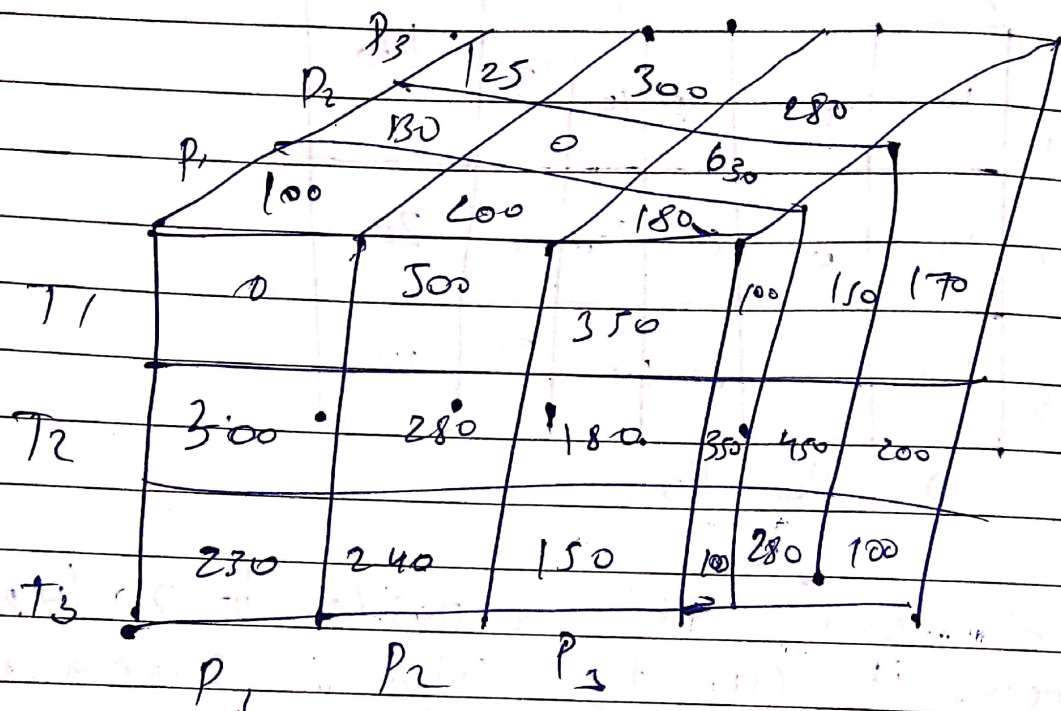 P3 125 300 280
P2 130 0 630
P1 100 200 180
T1 0 500 350 100 150 170
T2 300 280 180 350 450 200
T3 230 240 150 100 280 100
P1 P2 P3